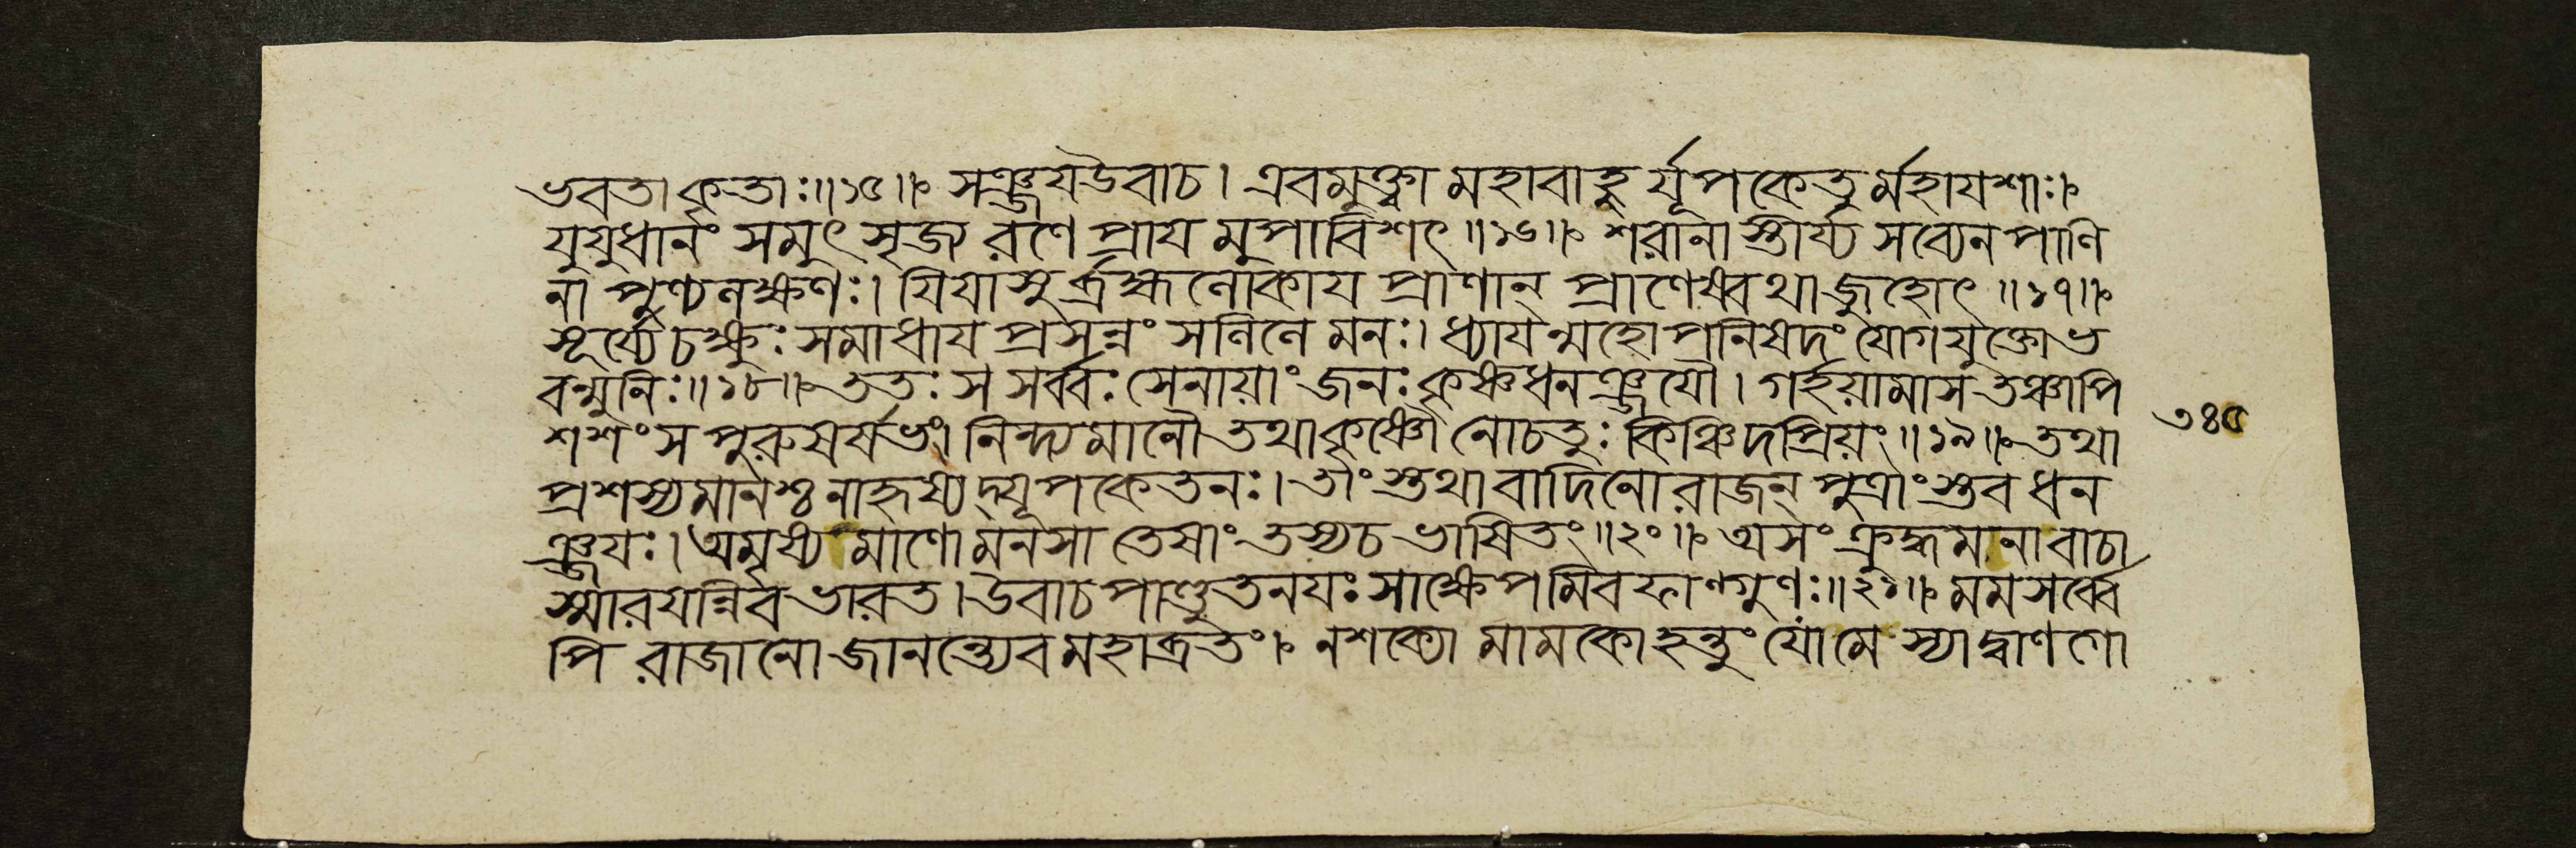 ভবতা কৃতাঃ॥১৫॥ সঞ্জয়উবাচ। এবমুক্ত্বা মহাবাহু র্যূপকেতু র্মহাযশাঃ।
যুযুধানং সমুৎসৃজ্য রণে প্রায মুপাবিশৎ॥১৬॥ শরানাস্তীর্য্য সব্যেন পাণি
না পুণ্যলক্ষণঃ। যিযাসুর্ব্রহ্মলোকায প্রাণান্ প্রাণেষ্বথাজুহোৎ॥১৭॥
সূর্য্যে চক্ষুঃ সমাধায প্রসন্নং সলিলে মনঃ। ধ্যাযন্মহোপনিষদং যোগযুক্তোভ
বন্মুনিঃ॥১৮॥ ততঃ স সর্ব্বঃ সেনায়াং জনঃ কৃষ্ণধনঞ্জযৌ। গর্হয়ামাস তঞ্চাপি
শশংস পুরুষর্ষভং। নিন্দ্যমানৌ তথাকৃষ্ণৌ নোচতুঃ কিঞ্চিদপ্রিয়ং॥১৯॥ তথা
৩৪৫
প্রশস্যমানশ্চ নাহৃষ্যদ্যূপকেতনঃ। তাংস্তথাবাদিনোরাজন্ পুত্রাংস্তব ধন
ঞ্জযঃ। অমৃষ্যমাণোমনসা তেষাং তস্যচ ভাষিতং॥২০॥ অসংক্রুদ্ধমানাবাচা
স্মারযন্নিবভারত। উবাচপাণ্ডুতনযঃ সাক্ষেপমিবফাল্গুণঃ॥২১॥ মমসর্ব্বে
পি রাজানো জানন্ত্যেবমহাব্রতং। নশক্যো মামকোহন্তুং যোমে স্যাদ্বাণগো